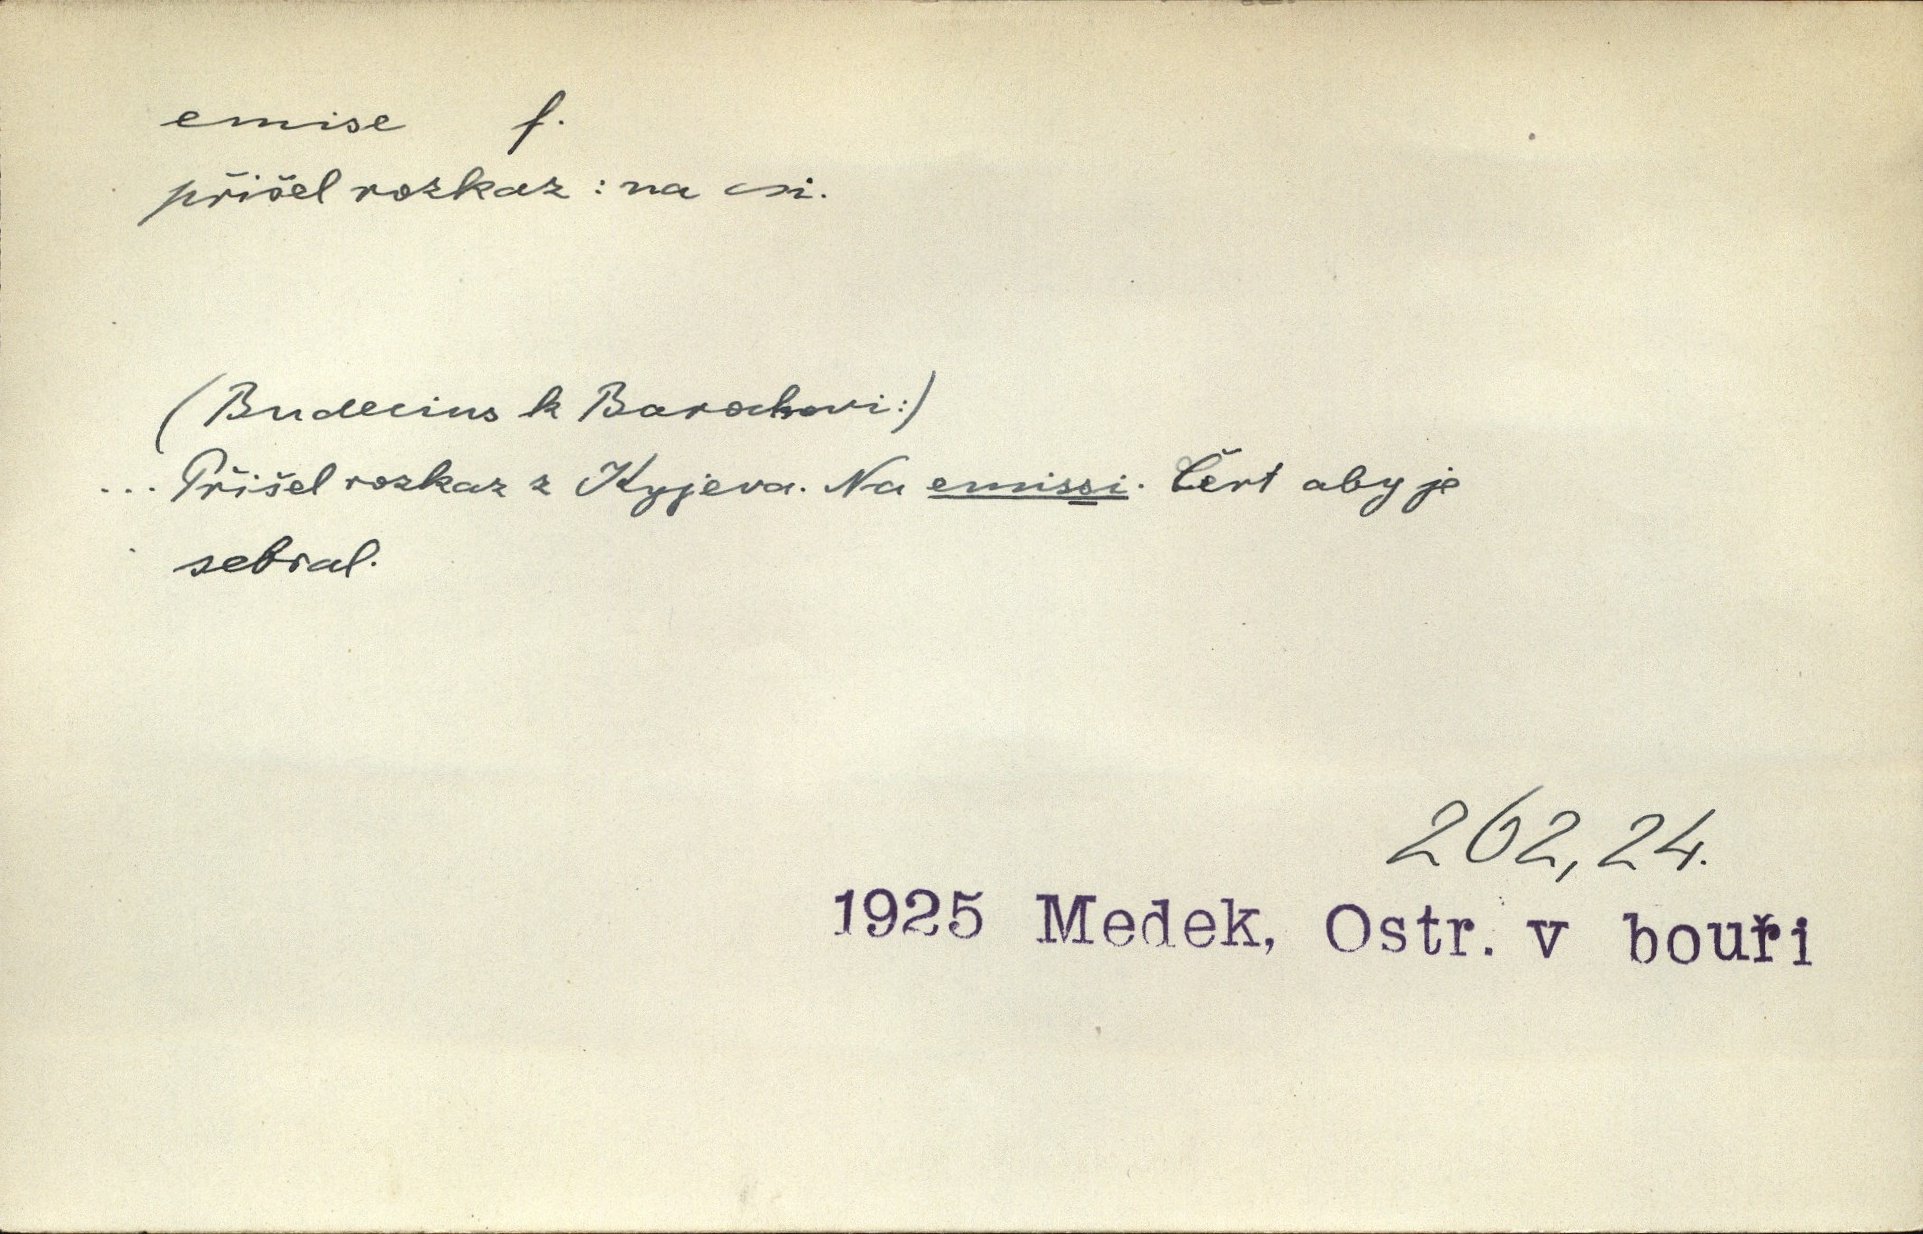 emise f.
přišel rozkaz: na si.
(Budecius k Barochovi:)
... Přišel rozkaz z Kyjeva. Na emissi. Čert aby je
sebral.
262, 24.
1925 Medek, Ostr. v bouři